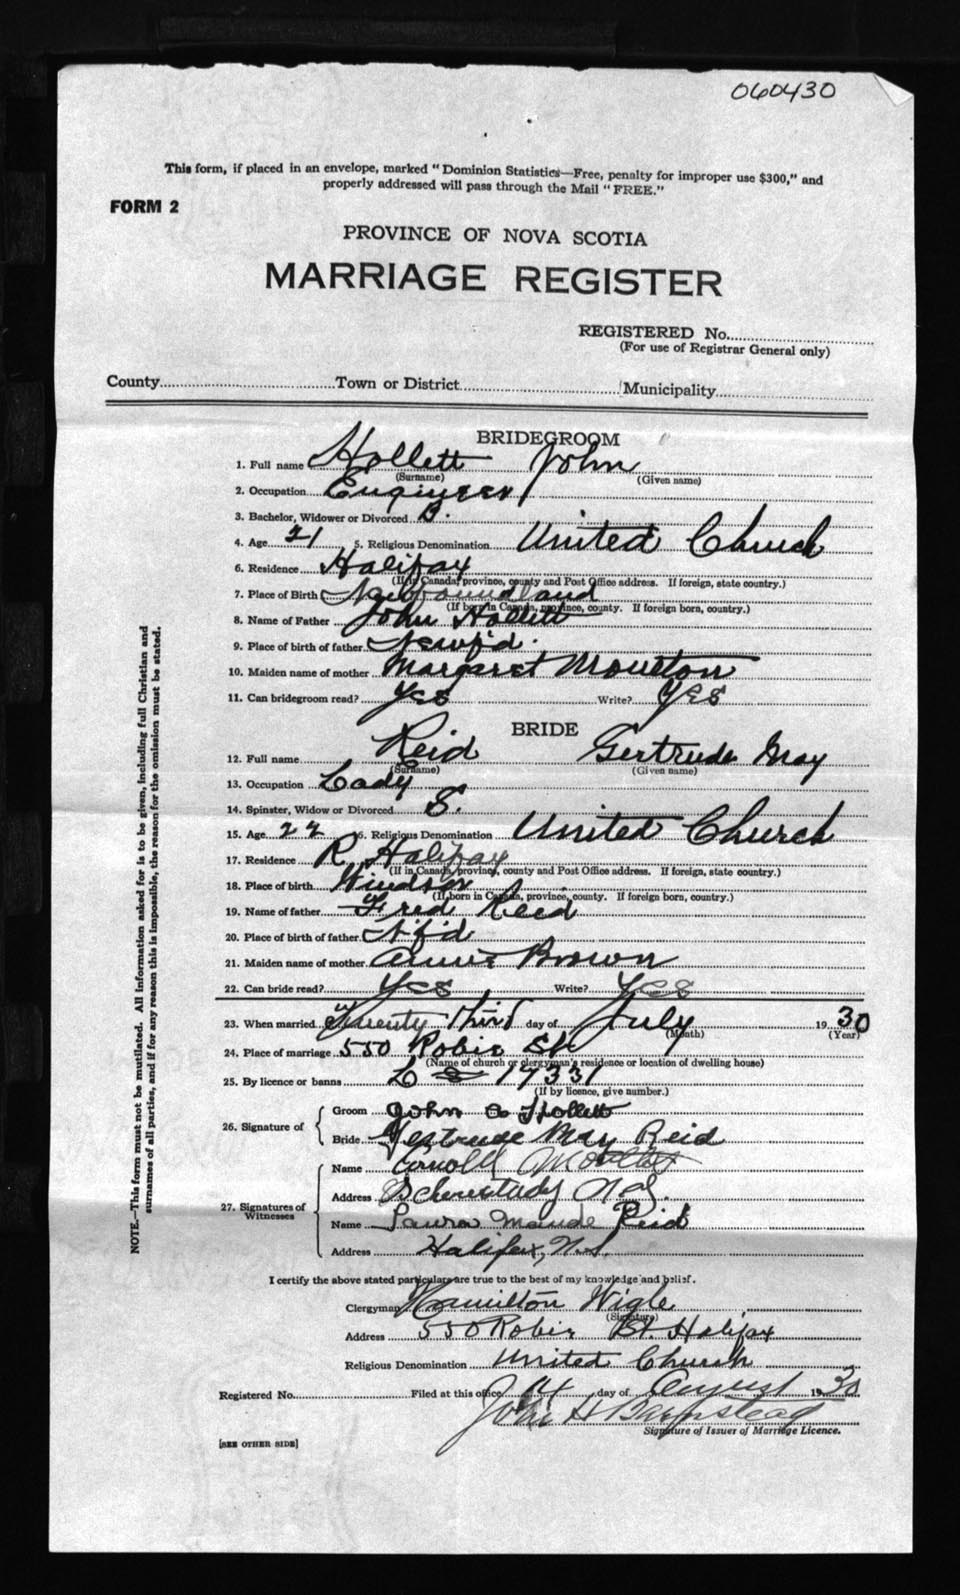 060430
This form, if placed in an envelope, marked "Dominion Statistics—Free, penalty for improper use $300," and
properly addressed will pass through the Mail "FREE."
FORM 2
PROVINCE OF NOVA SCOTIA
MARRIAGE REGISTER
REGISTERED No.
(For use of Registrar General only)
County Town or District Municipality
BRIDEGROOM
1. Full name Hollett John
(Surname) (Given name)
2. Occupation Engineer
3. Bachelor, Widower or Divorced B.
4. Age 21 5. Religious Denomination United Church
6. Residence Halifax
(If in Canada, province, county and Post Office address. If foreign, state country.)
7. Place of Birth Newfoundland
(If born in Canada, province, county. If foreign born, country.)
8. Name of Father John Hollett
9. Place of birth of father Newf'd.
10. Maiden name of mother Margaret Moulton
11. Can bridegroom read? Yes Write? Yes
BRIDE
12. Full name Reid Gertrude May
(Surname) (Given name)
13. Occupation Lady
14. Spinster, Widow or Divorced S.
15. Age 22 16. Religious Denomination United Church
17. Residence R Halifax
(If in Canada, province, county and Post Office address. If foreign, state country.)
18. Place of birth Windsor
(If born in Canada, province, county. If foreign born, country.)
19. Name of father Fred Reid
20. Place of birth of father N.f'd
21. Maiden name of mother Annie Brown
22. Can bride read? Yes Write? Yes
23. When married Twenty third day of July 1930
(Month) (Year)
24. Place of marriage 550 Robie St
(Name of church or clergyman's residence or location of dwelling house)
25. By licence or banns L 17331
(If by licence, give number.)
26. Signature of Groom John Hollett
Bride Gertrude May Reid
27. Signatures of Witnesses Name Arnold
Address Schenectady
Name Laura Maude Reid
Address Halifax, N.S.
I certify the above stated particulars are true to the best of my knowledge and belief.
Clergyman Hamilton Wigle
(Signature)
Address 550 Robie St. Halifax
Religious Denomination United Church
Registered No. Filed at this office 14 day of August 1930
John H Barnstead
Signature of Issuer of Marriage Licence.
[SEE OTHER SIDE]
NOTE.—This form must not be mutilated. All information asked for is to be given, including full Christian and
surnames of all parties, and if for any reason this is impossible, the reason for the omission must be stated.